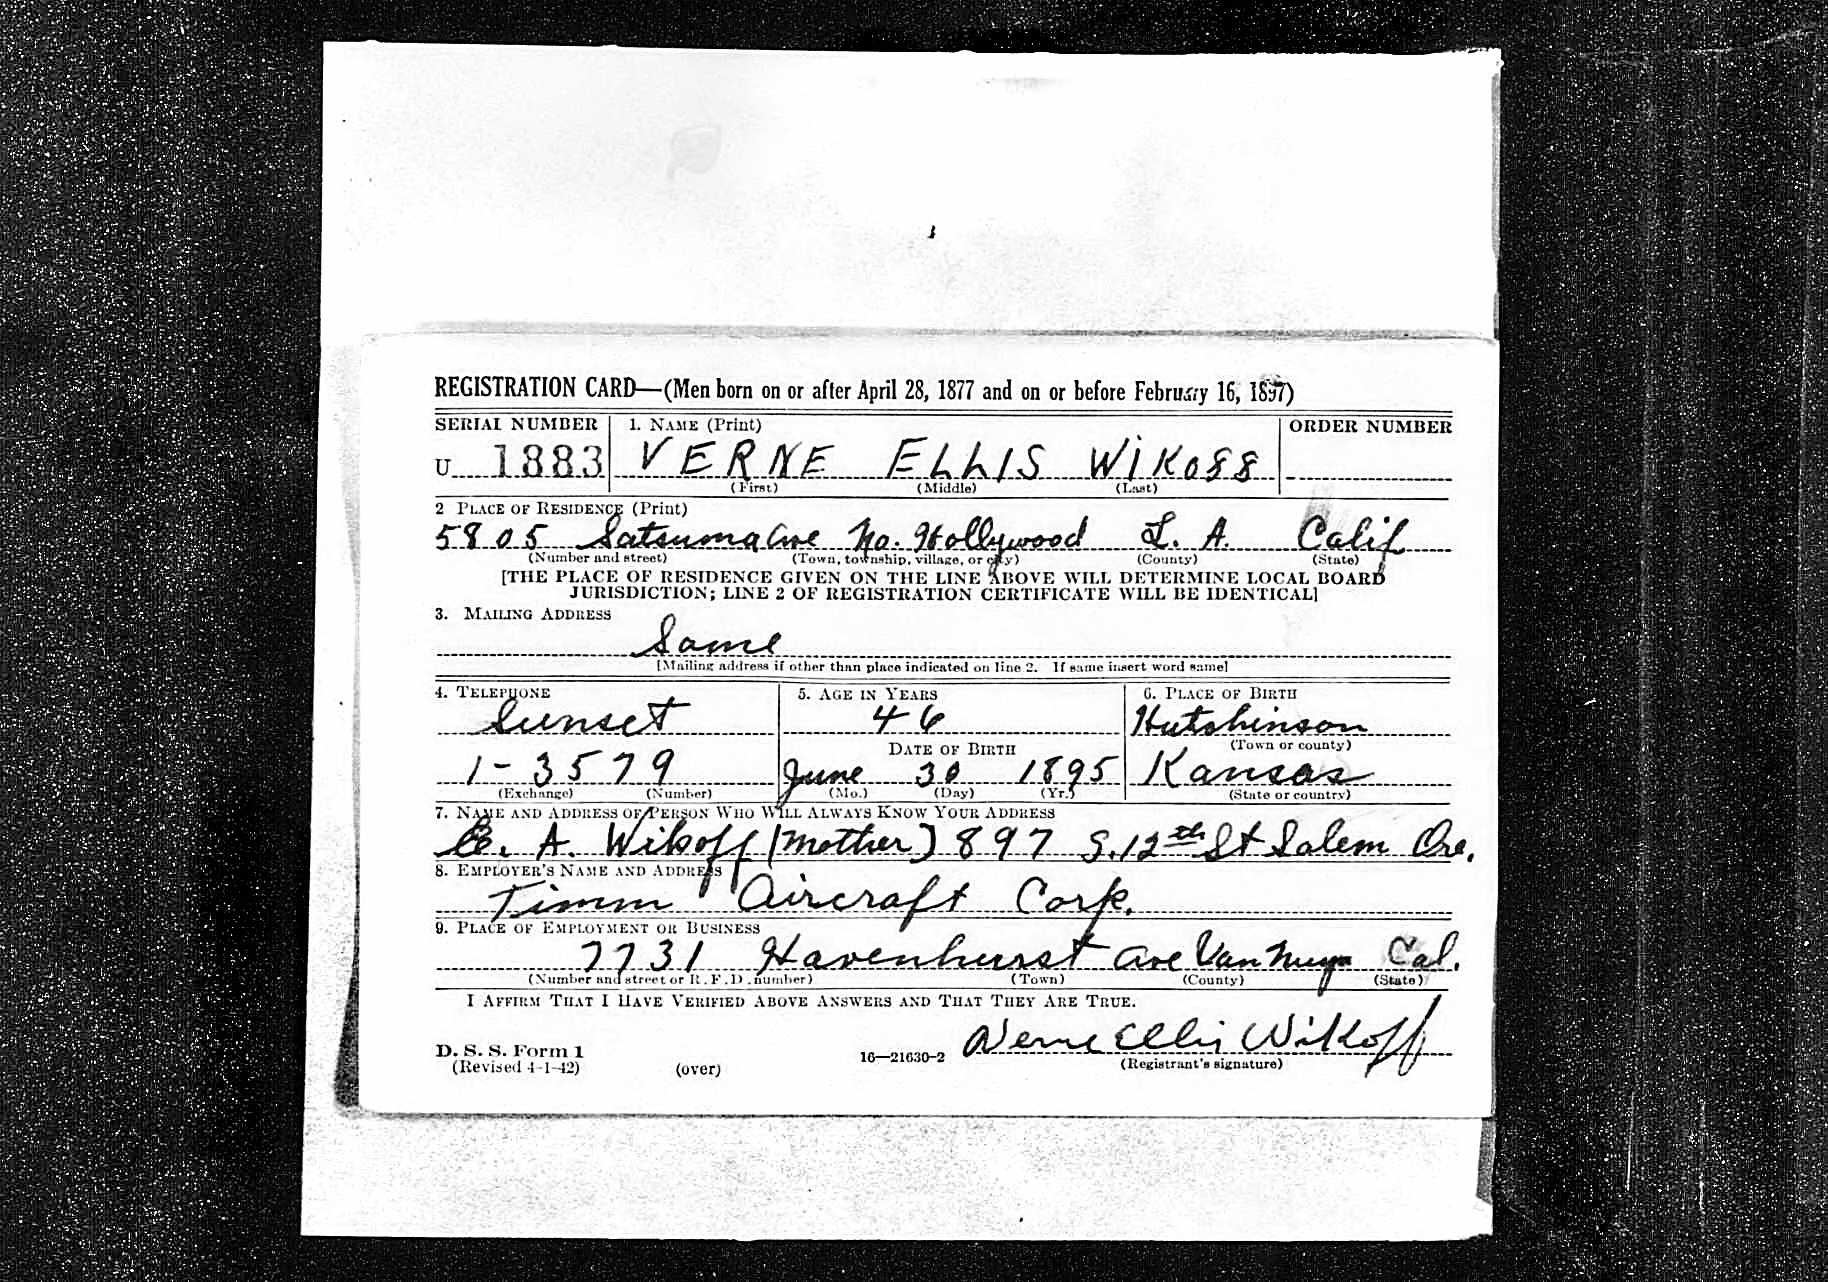 REGISTRATION CARD—(Men born on or after April 28, 1877 and on or before February 16, 1897)
SERIAL NUMBER
1. NAME (Print)
ORDER NUMBER
U 1883
VERNE ELLIS WIKOFF
(First) (Middle) (Last)
2 PLACE OF RESIDENCE (Print)
5805 Satsuma Ave No. Hollywood L. A. Calif
(Number and street) (Town, township, village, or city) (County) (State)
[THE PLACE OF RESIDENCE GIVEN ON THE LINE ABOVE WILL DETERMINE LOCAL BOARD
JURISDICTION; LINE 2 OF REGISTRATION CERTIFICATE WILL BE IDENTICAL]
3. MAILING ADDRESS
Same
[Mailing address if other than place indicated on line 2. If same insert word same]
4. TELEPHONE
5. AGE IN YEARS
6. PLACE OF BIRTH
Sunset
46
Hutchinson
DATE OF BIRTH
(Town or county)
1-3579
June 30 1895
Kansas
(Exchange) (Number)
(Mo.) (Day) (Yr.)
(State or country)
7. NAME AND ADDRESS OF PERSON WHO WILL ALWAYS KNOW YOUR ADDRESS
A. Wikoff (Mother) 897 S. 12th St Salem Ore.
8. EMPLOYER'S NAME AND ADDRESS
Timm Aircraft Corp.
9. PLACE OF EMPLOYMENT OR BUSINESS
7731 Havenhurst Ave Van Nuys Cal.
(Number and street or R. F. D. number) (Town) (County) (State)
I AFFIRM THAT I HAVE VERIFIED ABOVE ANSWERS AND THAT THEY ARE TRUE.
Verne Ellis Wikoff
D. S. S. Form 1
(Revised 4-1-42)
(over)
16—21630-2
(Registrant's signature)